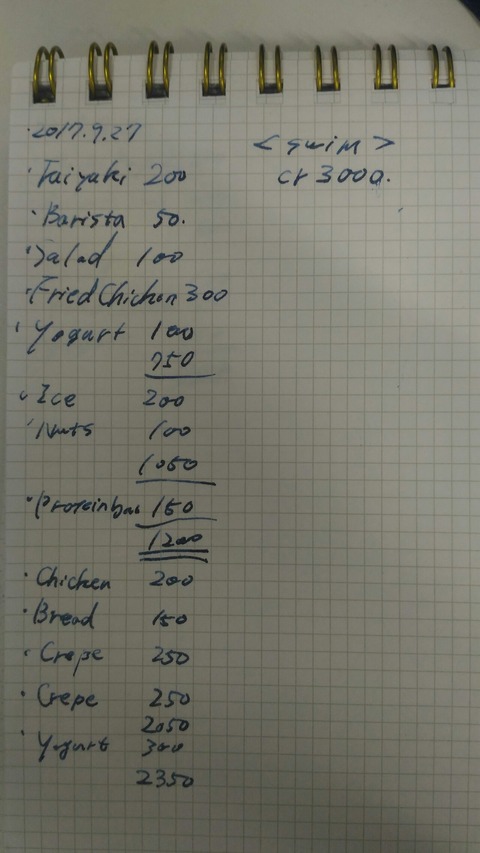 ·2017.9.27
·Taiyaki 200
·Barista 50.
·Salad 100
·Fried Chicken 300
·Yogurt 100
750
·Ice 200
·Nuts 100
1050
·Proteinbar 150
1200
·Chicken 200
·Bread 150
·Crepe 250
·Crepe 250
2050
·Yogurt 300
2350
<swim>
cr 3000.